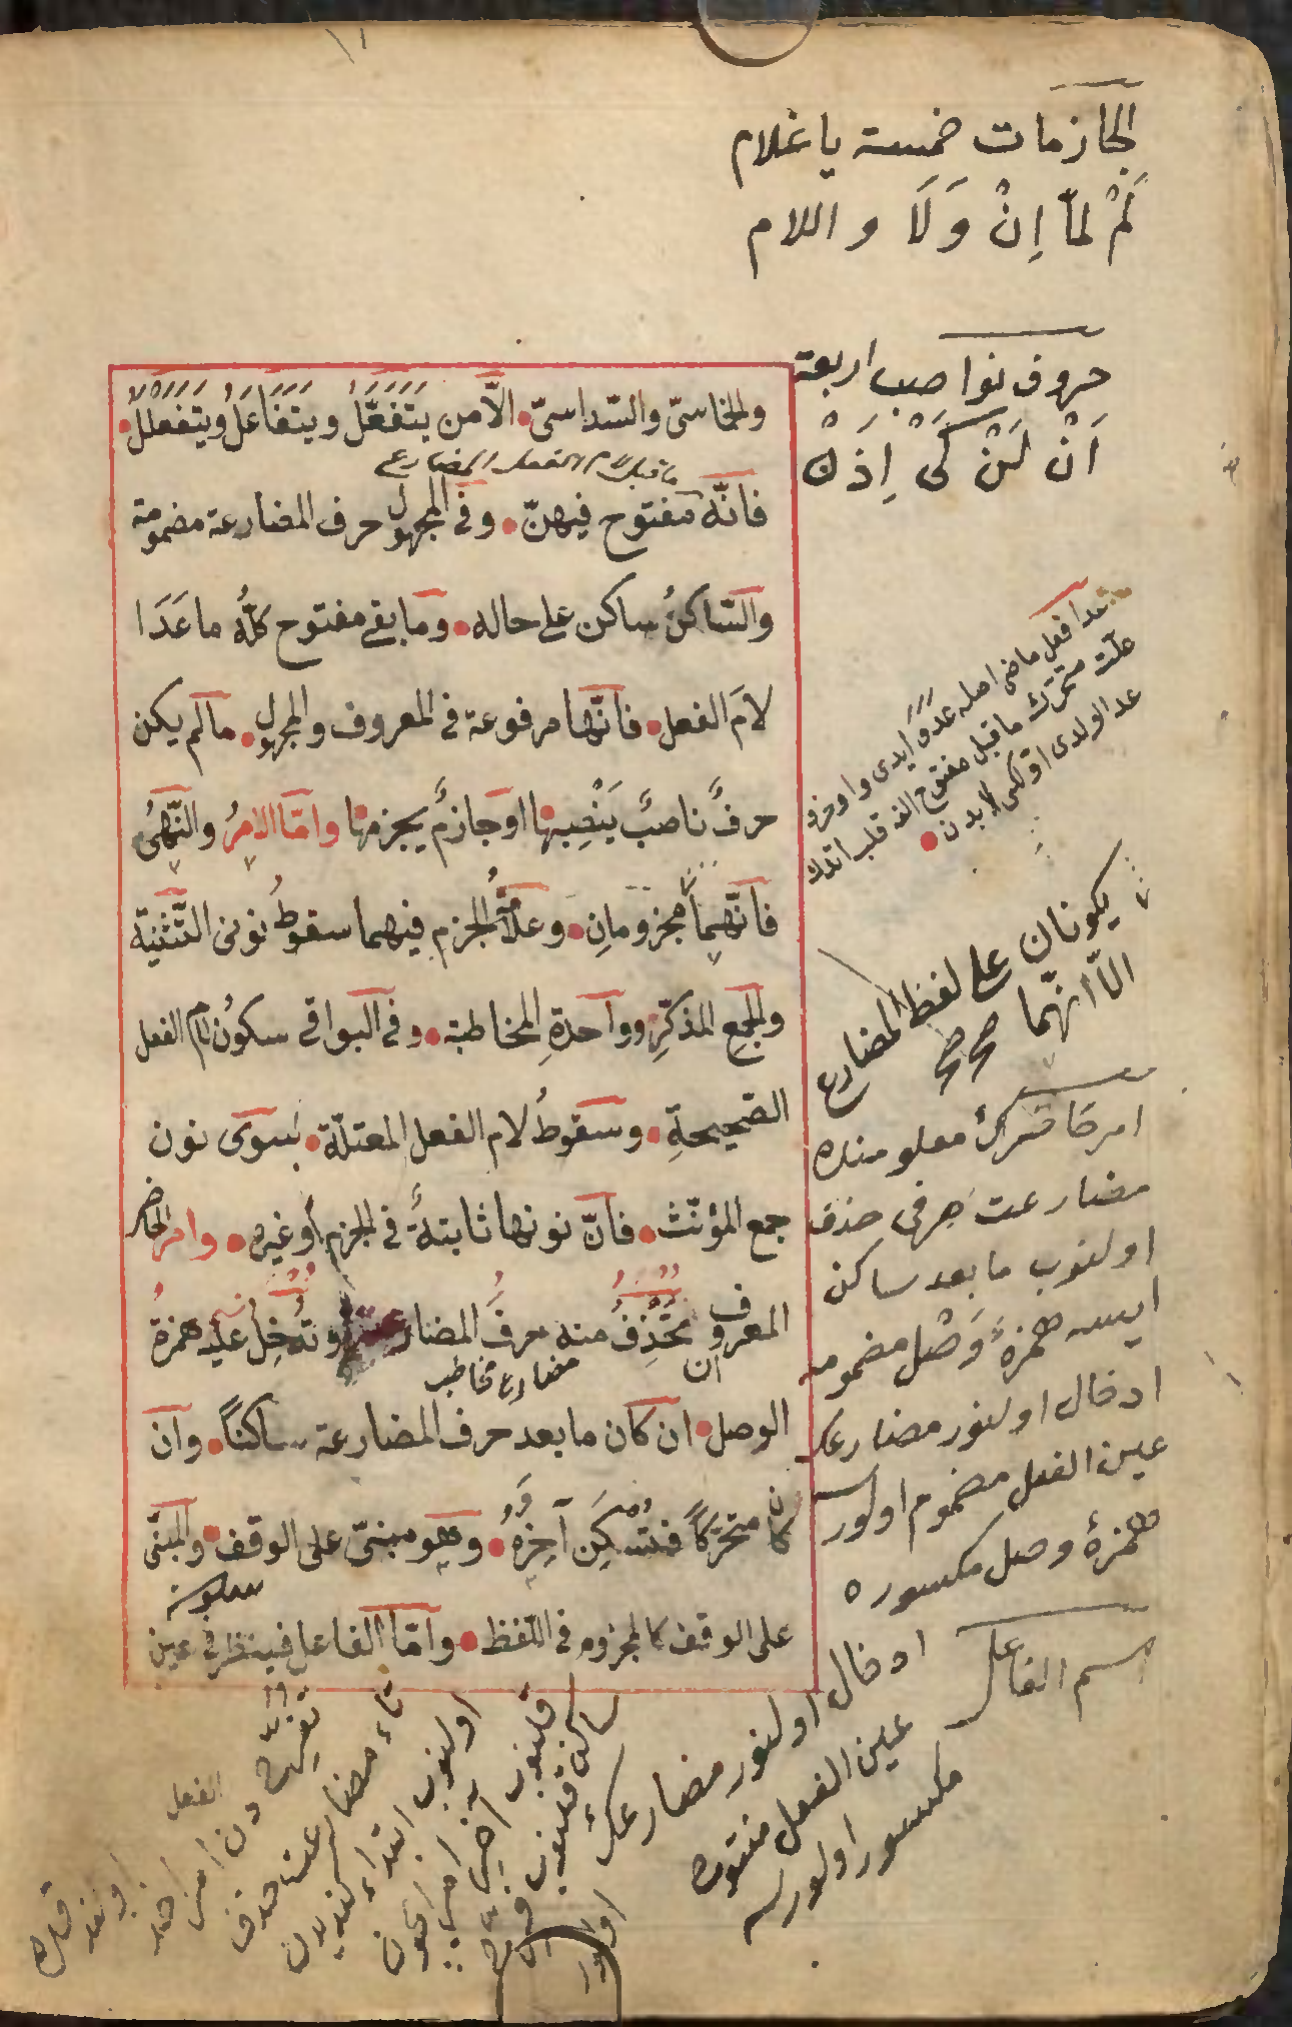 الجازمات خمسة يا غلام
لَمْ لمّا إِنْ وَلَا و اللام
حروف نواصب اربعة
اَنْ لَنْ كَىْ اِذَنْ
والخماسىّ والسّداسىّ الّا من يَتَفَعَّلُ ويَتَفَاعَلُ ويَتَفَعْلَلُ
ما قبل لام الفعل المضارع
فانّه مفتوح فيهنّ وفى المجهول حرف المضارعة مضمومة
والسّاكنُ ساكن على حاله وما بقى مفتوح كلّه ما عَدَا
لامَ الفعل فانّها مرفوعة فى المعروف والمجهول ما لم يكن
حرفٌ ناصبٌ يَنْصِبها او جازمٌ يجزمها وامّا الامرُ والنّهىُ
فانّهما مجزومانِ وعلامةُ الجزم فيهما سقوطُ نون التّثنية
والجمع المذكّرِ وواحدةِ المخاطبة وفى البواقى سكونُ لام الفعل
الصّحيحةِ وسقوطُ لام الفعل المعتلّة سوى نون
جمع المؤنّث فانّ نونها ثابتةٌ فى الجزم أو غيره وامر الحاضر
المعروف تَحْذِفُ منه حرفَ المضارعة وتُدْخِل عليه همزةَ
مضارع مخاطب
الوصل ان كان ما بعد حرف المضارعة ساكنًا وان
كان متحرّكًا فتُسْكِن آخِرَهُ وهو مبنىّ على الوقف والمبنىّ
على الوقف كالمجزوم فى اللّفظ وامّا الفاعل فينظر فى عين
الفعل
عدا فعل ماضى اصله عَدَوَ ايدى واو حرف
علّت متحرك ما قبلى مفتوح الفه قلب اتدك
عدا اولدى
يكونان على لفظ المضارع
الّا انّهما صح صح
مضارعت حرفى حذف
اولنوب ما بعد ساكن
ايسه همزۀ وَصْل مضمومه
ادخال اولنور مضارعك
عين الفعل مضموم اولورسه
همزۀ وصل مكسوره
اسم الفاعل
ادخال اولنور مضارعك
عين الفعل مفتوح
مكسور اولورسه